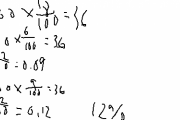 0 × 12/100 = 36
0 × 6/100 = 36
= 0.09
0 × 9/100 = 36
= 0.12 12%